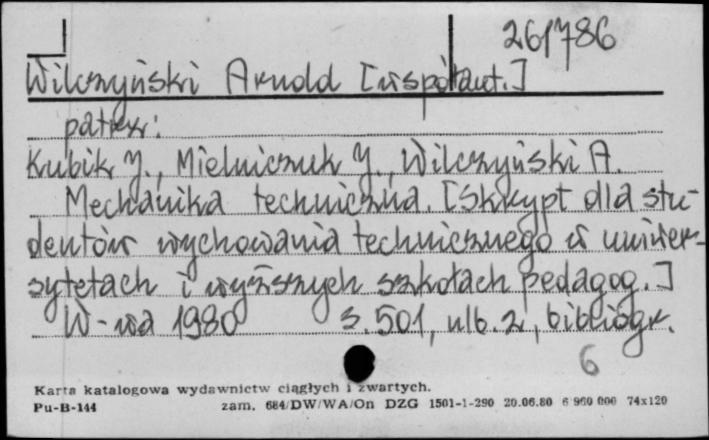 261786
Wilczyński Arnold [współaut.]
patrz:
Kubik J., Mielniczuk J., Wilczyński A.
Mechanika techniczna. [Skrypt dla stu-
dentów wychowania technicznego w uniwer-
sytetach i wyższych szkołach pedagog.]
W-wa 1980 s. 501, nlb. 2, bibliogr.
6
Karta katalogowa wydawnictw ciągłych i zwartych.
Pu-B-144 zam. 684/DW/WA/On DZG 1501-1-290 20.06.80 6 960 000 74x120